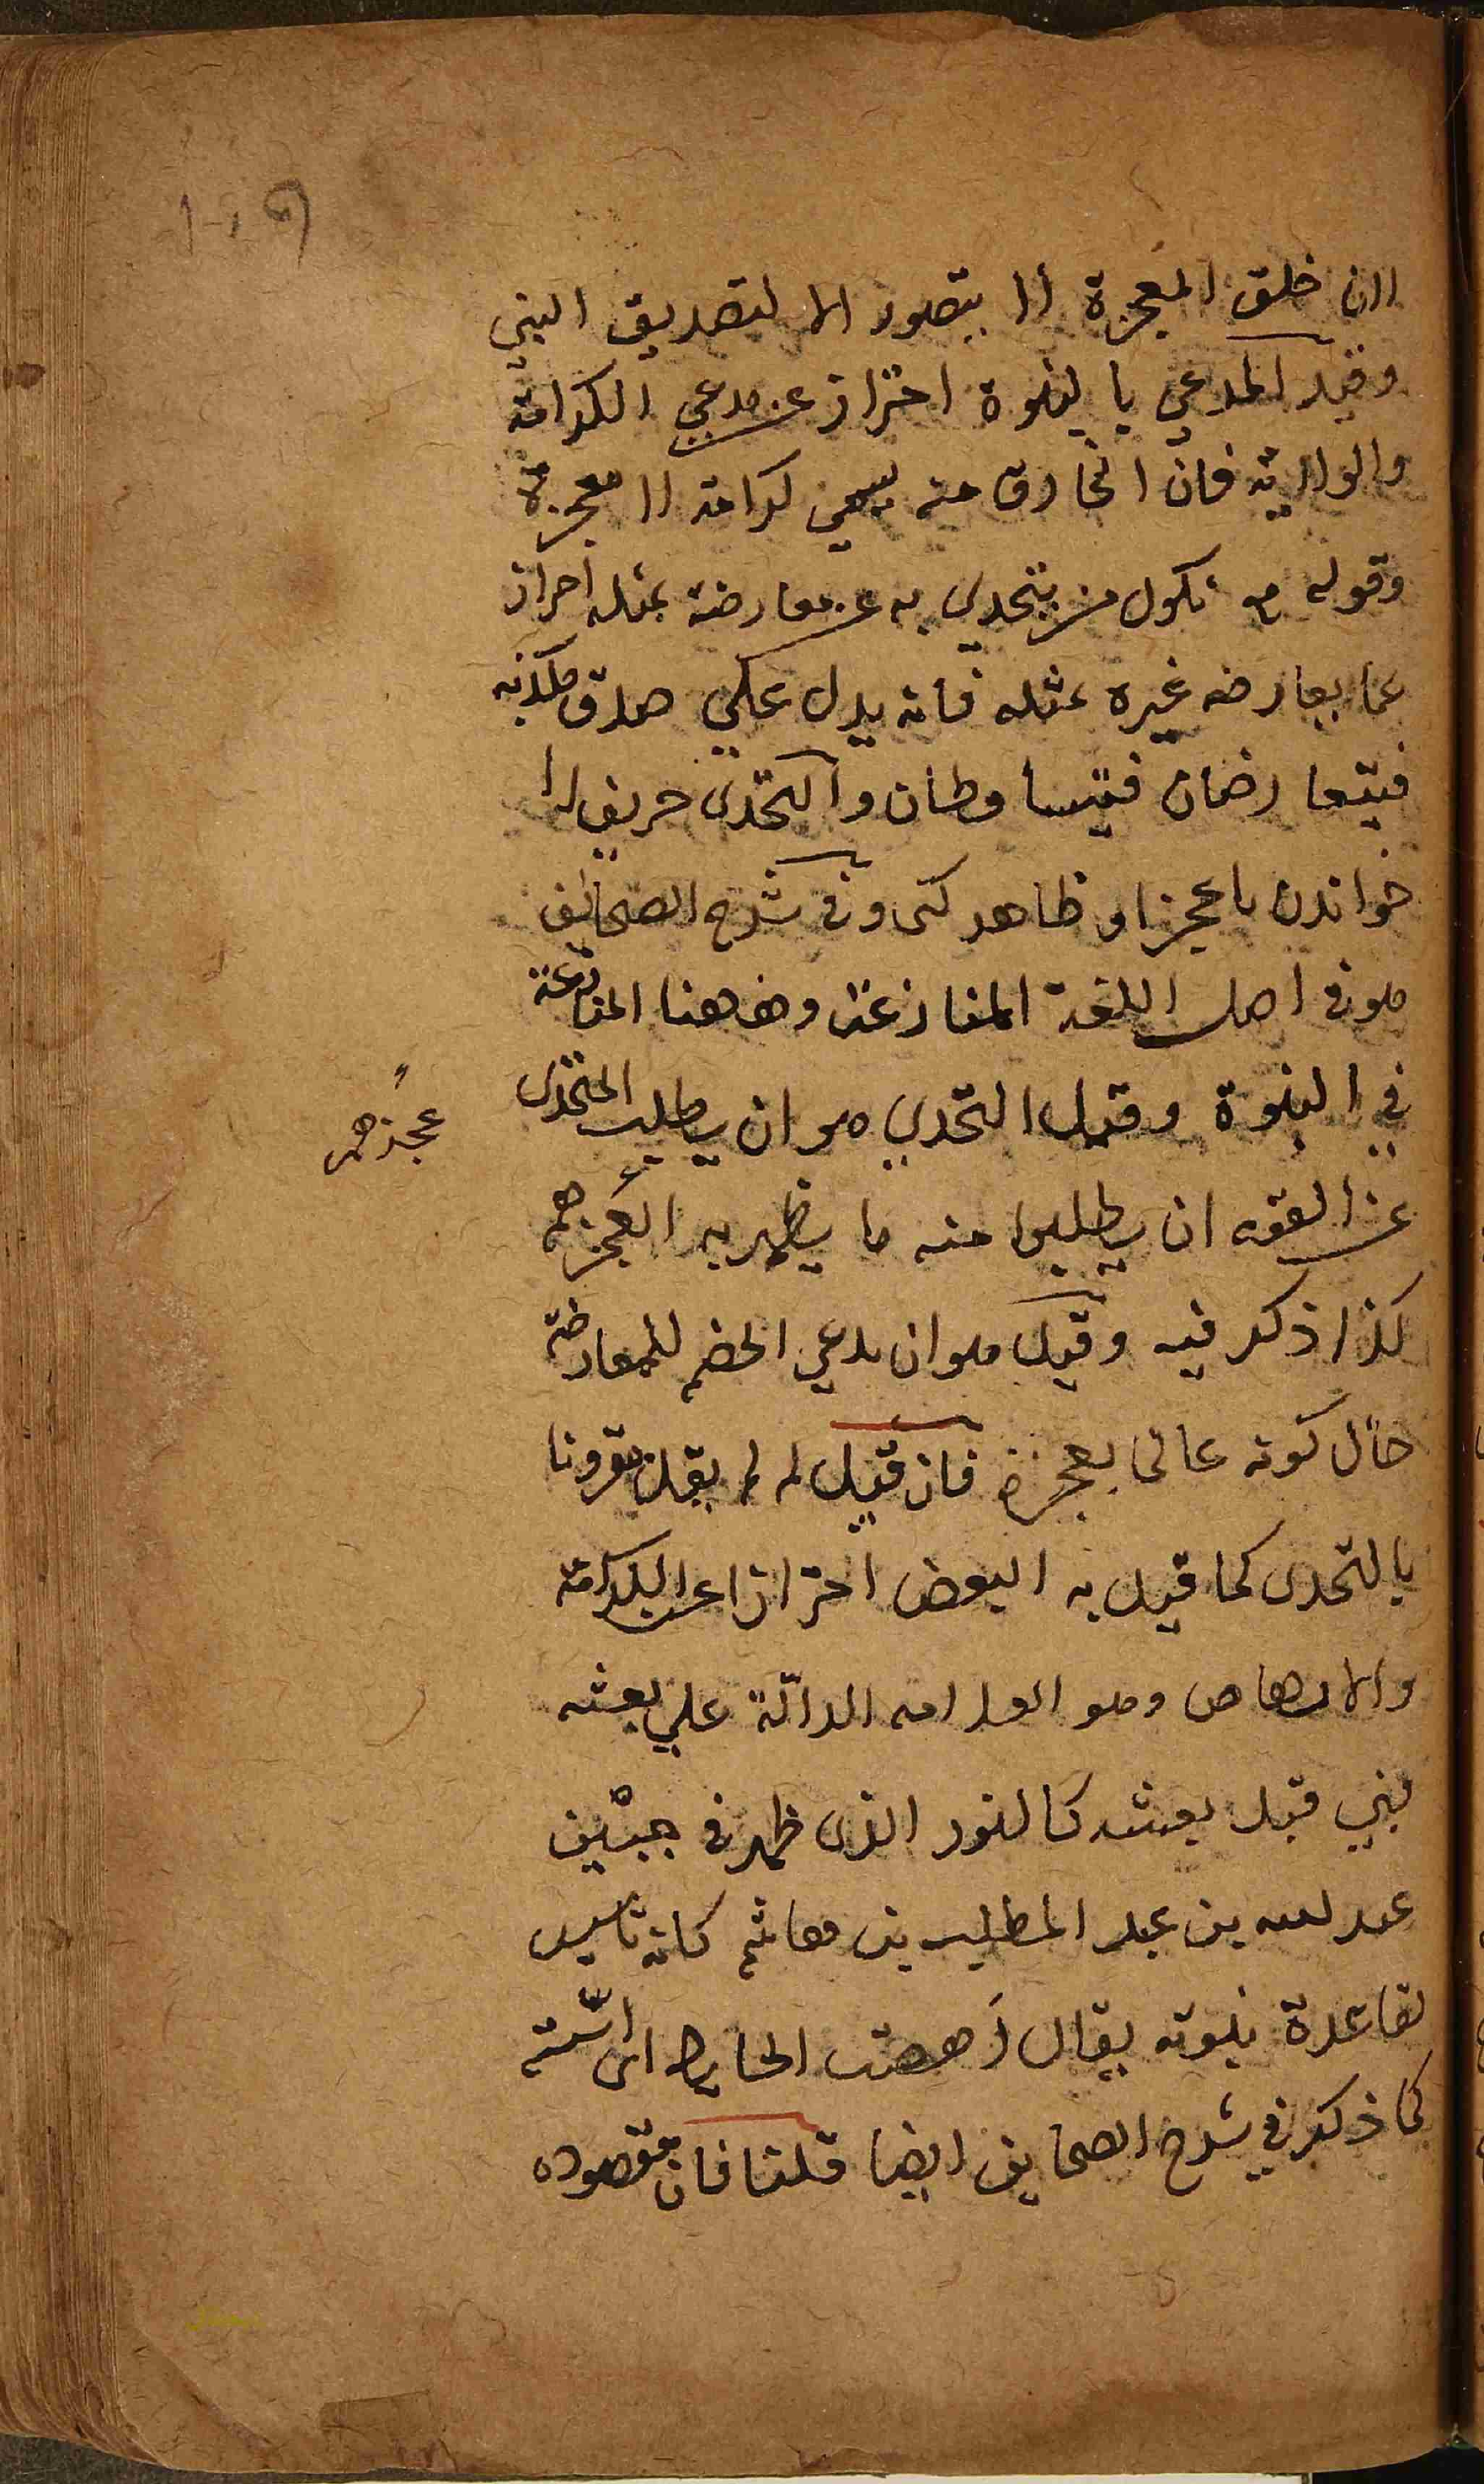 لان خلق المعجزة لا يتصور الا لتصديق النبي
وقيد المدعي بالنبوة احتراز عن مدعي الكرامة
والولاية فان الخارق منه يسمي كرامة لا معجزة
وقوله مع نكول من يتحدي به عن معارضة بمثله احراز
عما يعارضه غيره بمثله فانه يدل علي صدق مكذبه
فيتعارضان فيتساوطان والتحدي حريف را
خواندن با عجز او ظاهر كى وفي شرح الصحائف
هو في اصل اللغة المنازعة وههنا المنازعة
في النبوة وقيل التحدي هو ان يطلب المتحدى
عجزهم
عن القوم ان يطلبوا منه ما يظهر به العجزهم
كذا ذكر فيه وقيل هو ان يدعي الخصم للمعارضة
حال كونه عالى بعجزه فان قيل لم لم يقل مقرونا
بالتحدى كما قيل به البعض احترازا عن الكرامة
والارهاص وهو العلامه الدالة علي بعثه
نبي قبل بعثه كالنور الذى ظهر في جبين
عبد الله بن عبد المطلب بن هاشم كانه تاسيس
لقاعدة نبوته يقال رهصت الحايط اى اسسته
كما ذكر في شرح الصحايف ايضا قلنا فان مقصوده